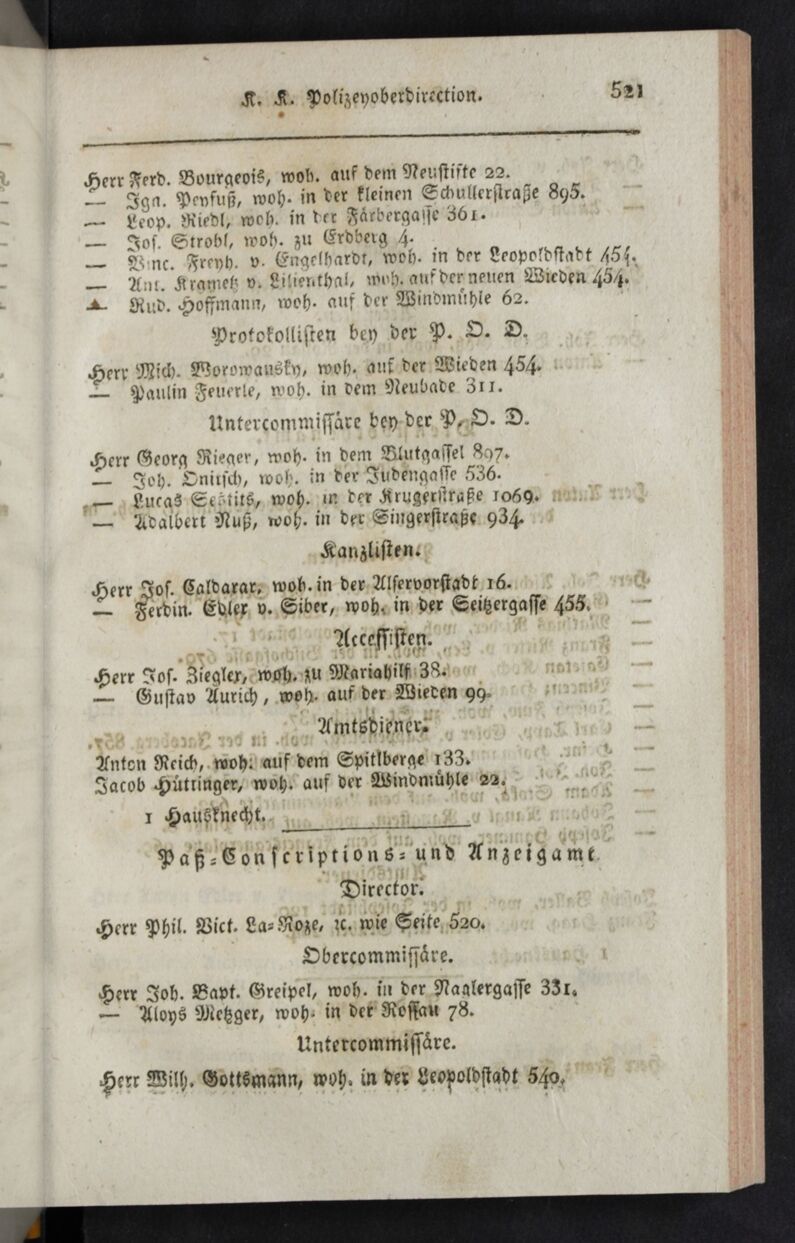 K. K. Polizeyoberdirection. 521
Herr Ferd. Bourgeois, woh. auf dem Neustifte 22.
— Ign. Peyfuß, woh. in der kleinen Schullerstraße 895.
— Leop. Riedl, woh. in der Färbergasse 361.
— Jos. Strobl, woh. zu Erdberg 4.
— Vinc. Freyh. v. Engelhardt, woh. in der Leopoldstadt
— Ant. Krametz v. Lilienthal, woh. auf der neuen Wieden 454.
— Rud. Hoffmann, woh. auf der Windmühle 62.
Protokollisten bey der P. O. D.
Herr Mich. Worowansky, woh. auf der Wieden 454.
— Paulin Feuerle, woh. in dem Neubade 311.
Untercommissäre bey der P. O. D.
Herr Georg Rieger, woh. in dem Blutgassel 897.
— Joh. Onitsch, woh. in der Judengasse 536.
— Lucas woh. in der Krugerstraße 1069.
— Adalbert Nuß, woh. in der Singerstraße 934.
Kanzlisten.
Herr Jos. Caldarar, woh. in der Alservorstadt 16.
— Ferdin. Edler v. Siber, woh. in der Seitzergasse 455.
Accessisten.
Herr Jos. Ziegler, woh. zu Mariahilf 38.
— Gustav Aurich, woh. auf der Wieden 99.
Amtsdiener.
Anton Reich, woh. auf dem Spitlberge 133.
Jacob Hüttinger, woh. auf der Windmühle 22.
1 Hausknecht.
Paß-Conscriptions- und Anzeigamt
Director.
Herr Phil. Vict. La-Roze, ꝛc. wie Seite 520.
Obercommissäre.
Herr Joh. Bapt. Greipel, woh. in der Naglergasse 331.
— Aloys Metzger, woh. in der Rossau 78.
Untercommissäre.
Herr Wilh. Gottsmann, woh. in der Leopoldstadt 540.